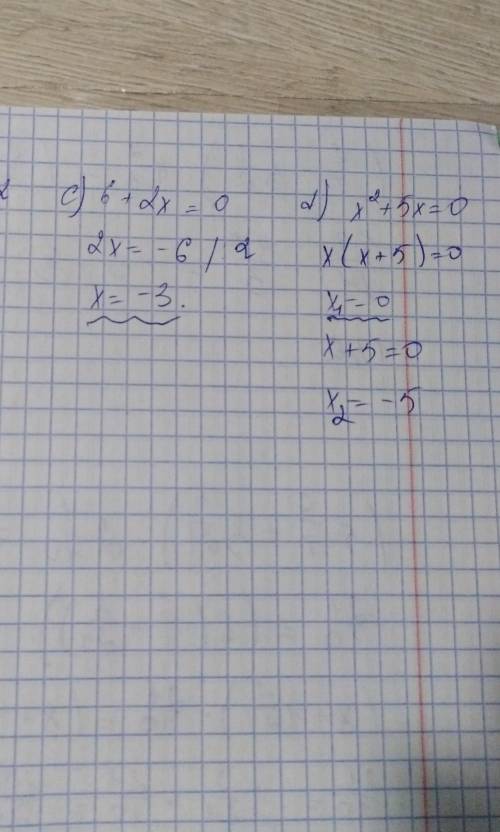 c) 6 + 2x = 0
2x = -6 / 2
x = -3.
d) x² + 5x = 0
x(x + 5) = 0
x₁ = 0
x + 5 = 0
x₂ = -5